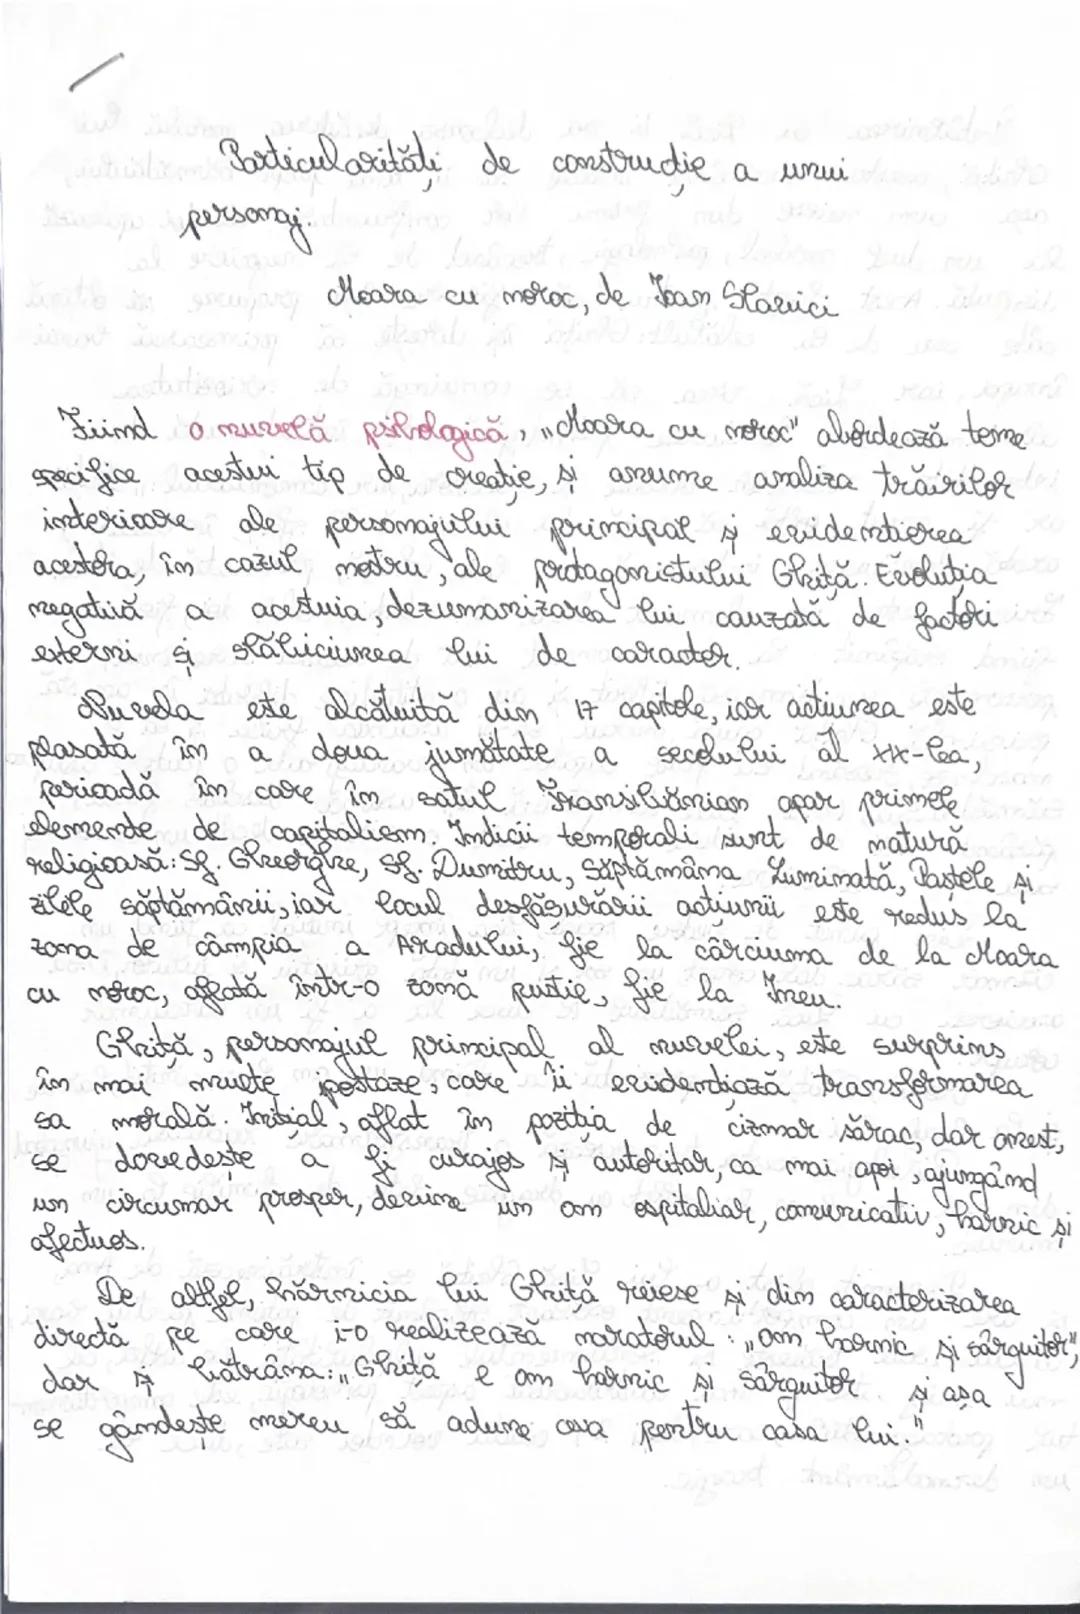 Particularități de construcție a unui
personaj.
Moara cu noroc, de Ioan Slavici
Fiind o nuvelă psihologică, „Moara cu noroc" abordează teme
specifice acestui tip de creație, și anume analiza trăirilor
interioare ale personajului principal și evidențierea
acestora, în cazul nostru, ale protagonistului Ghiță. Evoluția
negativă a acestuia, dezumanizarea lui cauzată de factori
externi și slăbiciunea lui de caracter.
Nuvela este alcătuită din 17 capitole, iar acțiunea este
plasată în a doua jumătate a secolului al XX-lea,
perioadă în care în satul Transilvănian apar primele
elemente de capitalism. Indicii temporali sunt de natură
religioasă: Sf. Gheorghe, Sf. Dumitru, Săptămâna Luminată, Paștele și
zilele săptămânii, iar locul desfășurării acțiunii este redus la
zona de câmpia a Aradului, fie la cârciuma de la Moara
cu noroc, aflată într-o zonă pustie, fie la Ineu.
Ghiță, personajul principal al nuvelei, este surprins
în mai multe ipostaze, care îi evidențiază transformarea
sa morală. Inițial, aflat în poziția de cizmar sărac, dar onest,
se dovedește a fi curajos și autoritar, ca mai apoi, ajungând
un circiumar prosper, devine un om ospitaliar, comunicativ, harnic și
afectuos.
De altfel, hărnicia lui Ghiță reiese și din caracterizarea
directă pe care i-o realizează naratorul: „om harnic și sârguitor",
dar și bătrâna: „Ghiță e om harnic și sârguitor și așa
se gândește mereu să adune ceva pentru casa lui."